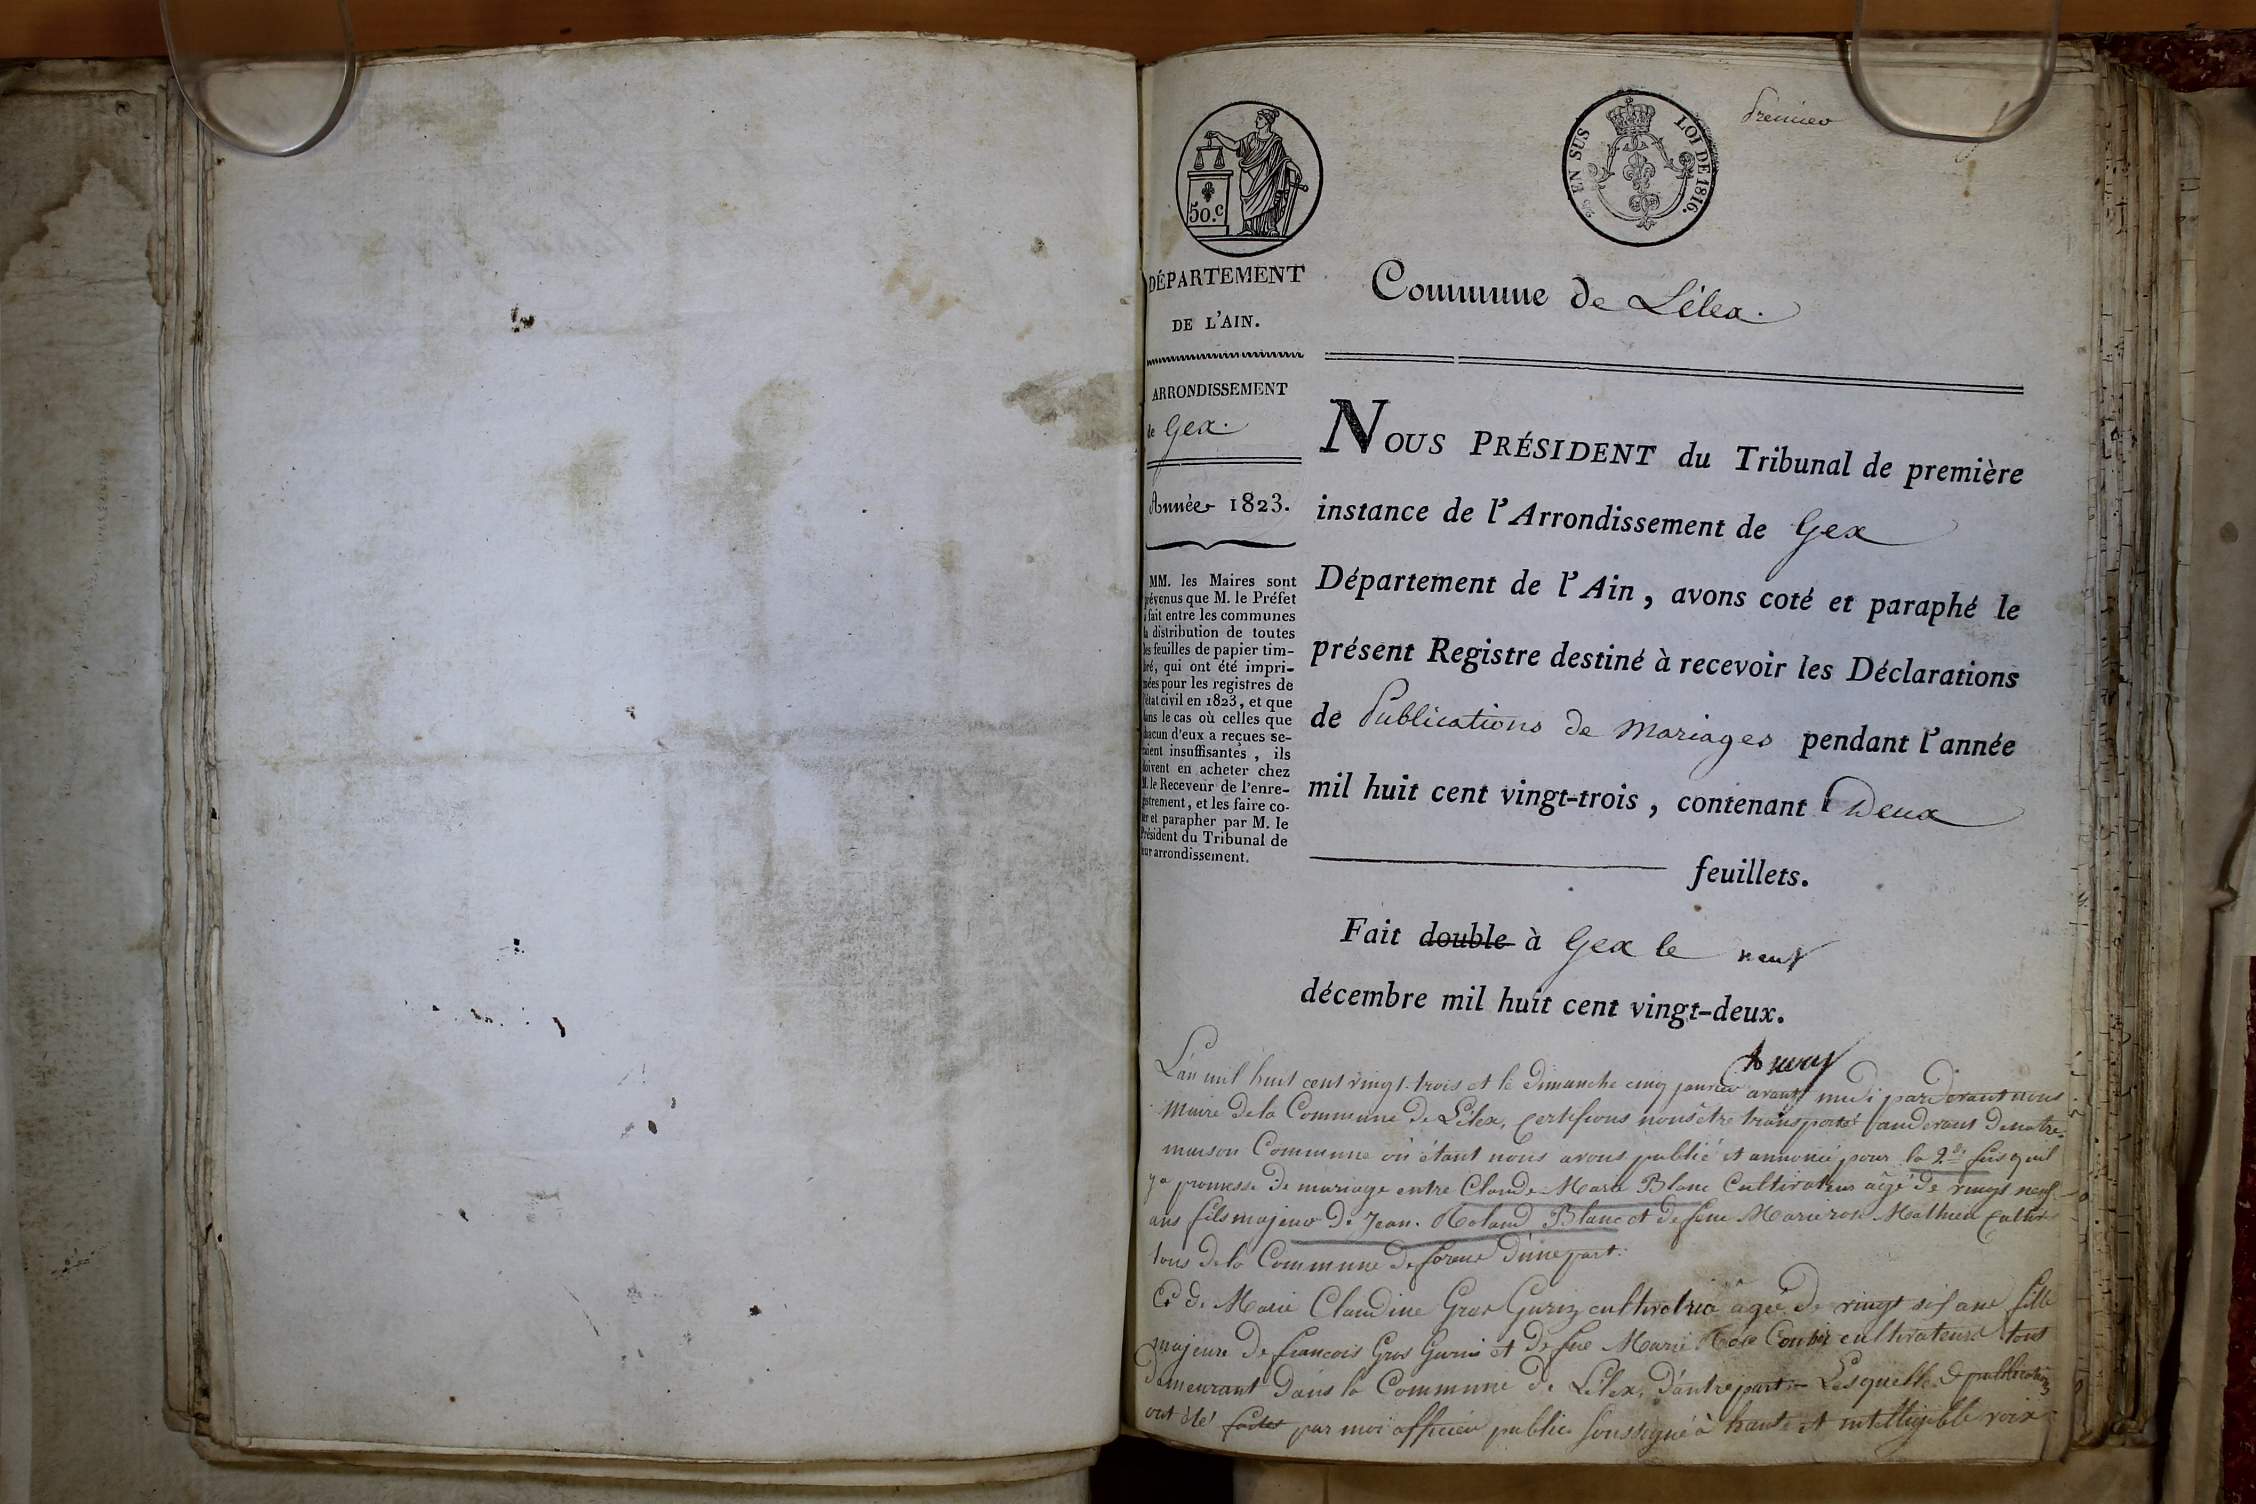 Premier
50.c
EN SUS LOI DE 1816.
DÉPARTEMENT
DE L'AIN.
ARRONDISSEMENT
de Gex.
Année 1823.
MM. les Maires sont
prévenus que M. le Préfet
a fait entre les communes
la distribution de toutes
les feuilles de papier tim-
bré, qui ont été impri-
mées pour les registres de
l'état civil en 1823, et que
dans le cas où celles que
chacun d'eux a reçues se-
raient insuffisantes, ils
doivent en acheter chez
M. le Receveur de l'enre-
gistrement, et les faire co-
ter et parapher par M. le
Président du Tribunal de
leur arrondissement.
Commune de Lélex.
NOUS PRÉSIDENT du Tribunal de première
instance de l'Arrondissement de Gex
Département de l'Ain, avons coté et paraphé le
présent Registre destiné à recevoir les Déclarations
de Publications de Mariages pendant l'année
mil huit cent vingt-trois, contenant Deux
feuillets.
Fait double à Gex le neuf
décembre mil huit cent vingt-deux.
L'an mil huit cent vingt-trois et le Dimanche cinq janvier avant midi pardevant nous
Maire de la Commune de Lélex, certifions nous être transporté audevant de notre
maison Commune où étant nous avons publié et annoncé pour la 2de fois qu'il
y a promesse de mariage entre Claude Marie Blanc Cultivateur agé de vingt neuf
ans fils majeur de Jean Roland Blanc et de feue Mathieu
tous de la Commune de d'une part.
Et de Marie Claudine Gros Gurin cultivatrice agée de vingt six ans fille
majeure de francois Gros Gurin et de feue Marie Rose cultivateurs tous
demeurant dans la Commune de Lélex, d'autre part Lesquelles publications
ont été faites par moi officier public soussigné à haute et intelligible voix